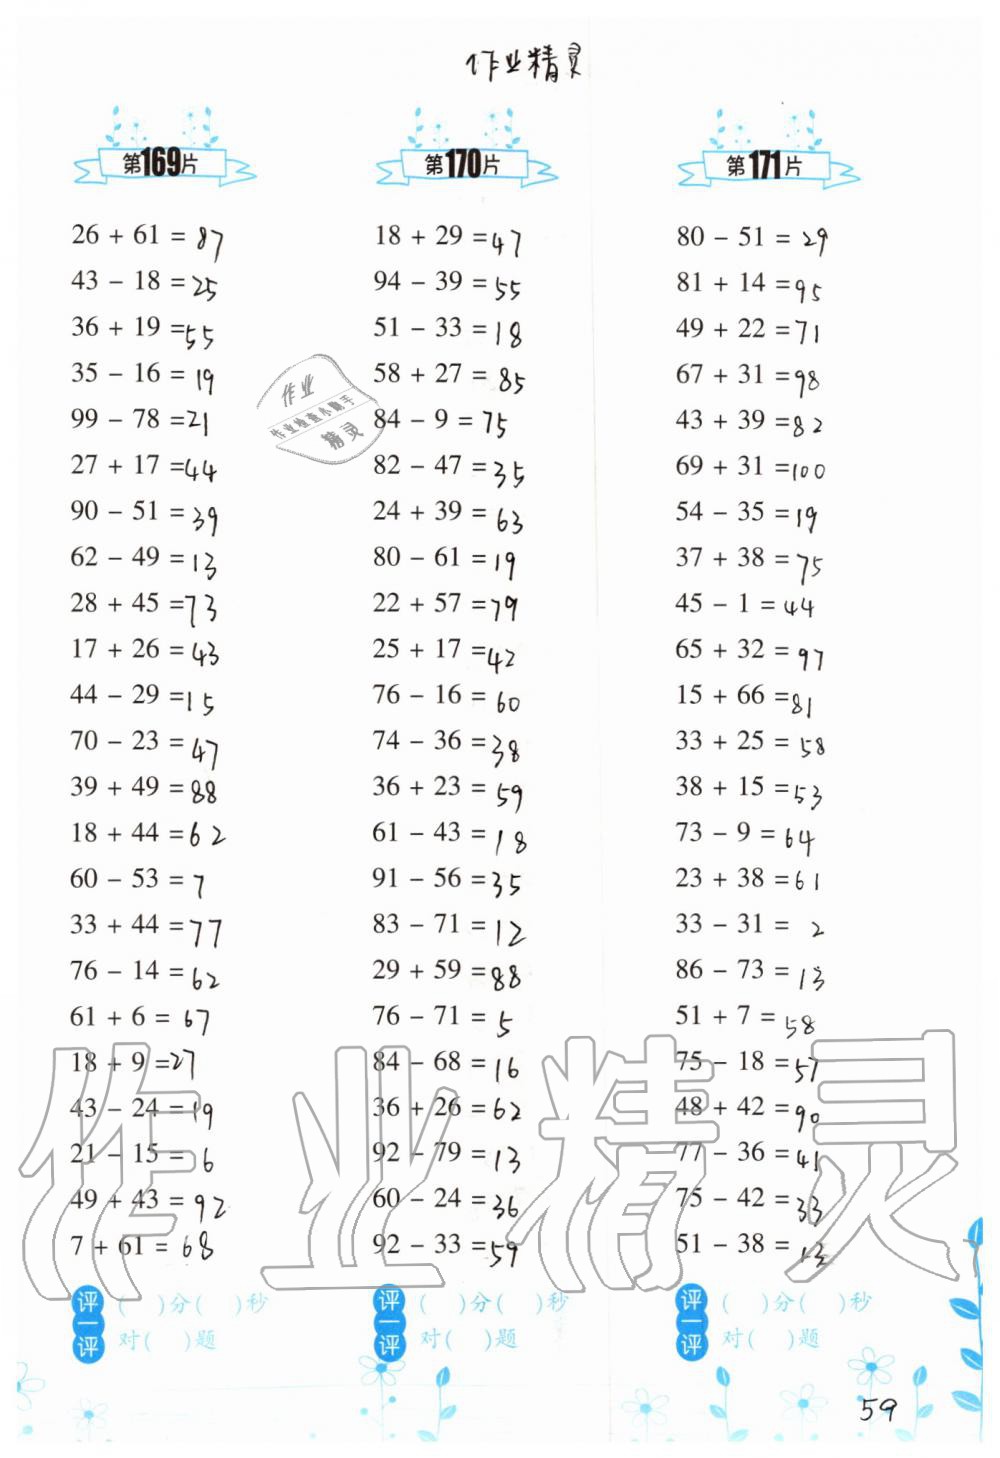 作业精灵
第169片
26 + 61 = 87
43 - 18 = 25
36 + 19 = 55
35 - 16 = 19
99 - 78 = 21
27 + 17 = 44
90 - 51 = 39
62 - 49 = 13
28 + 45 = 73
17 + 26 = 43
44 - 29 = 15
70 - 23 = 47
39 + 49 = 88
18 + 44 = 62
60 - 53 = 7
33 + 44 = 77
76 - 14 = 62
61 + 6 = 67
18 + 9 = 27
43 - 24 = 19
21 - 15 = 6
49 + 43 = 92
7 + 61 = 68
评一评
( )分( )秒
对( )题
第170片
18 + 29 = 47
94 - 39 = 55
51 - 33 = 18
58 + 27 = 85
84 - 9 = 75
82 - 47 = 35
24 + 39 = 63
80 - 61 = 19
22 + 57 = 79
25 + 17 = 42
76 - 16 = 60
74 - 36 = 38
36 + 23 = 59
61 - 43 = 18
91 - 56 = 35
83 - 71 = 12
29 + 59 = 88
76 - 71 = 5
84 - 68 = 16
36 + 26 = 62
92 - 79 = 13
60 - 24 = 36
92 - 33 = 59
评一评
( )分( )秒
对( )题
第171片
80 - 51 = 29
81 + 14 = 95
49 + 22 = 71
67 + 31 = 98
43 + 39 = 82
69 + 31 = 100
54 - 35 = 19
37 + 38 = 75
45 - 1 = 44
65 + 32 = 97
15 + 66 = 81
33 + 25 = 58
38 + 15 = 53
73 - 9 = 64
23 + 38 = 61
33 - 31 = 2
86 - 73 = 13
51 + 7 = 58
75 - 18 = 57
48 + 42 = 90
77 - 36 = 41
75 - 42 = 33
51 - 38 = 13
评一评
( )分( )秒
对( )题
作业
作业检查小助手
精灵
作业精灵
59